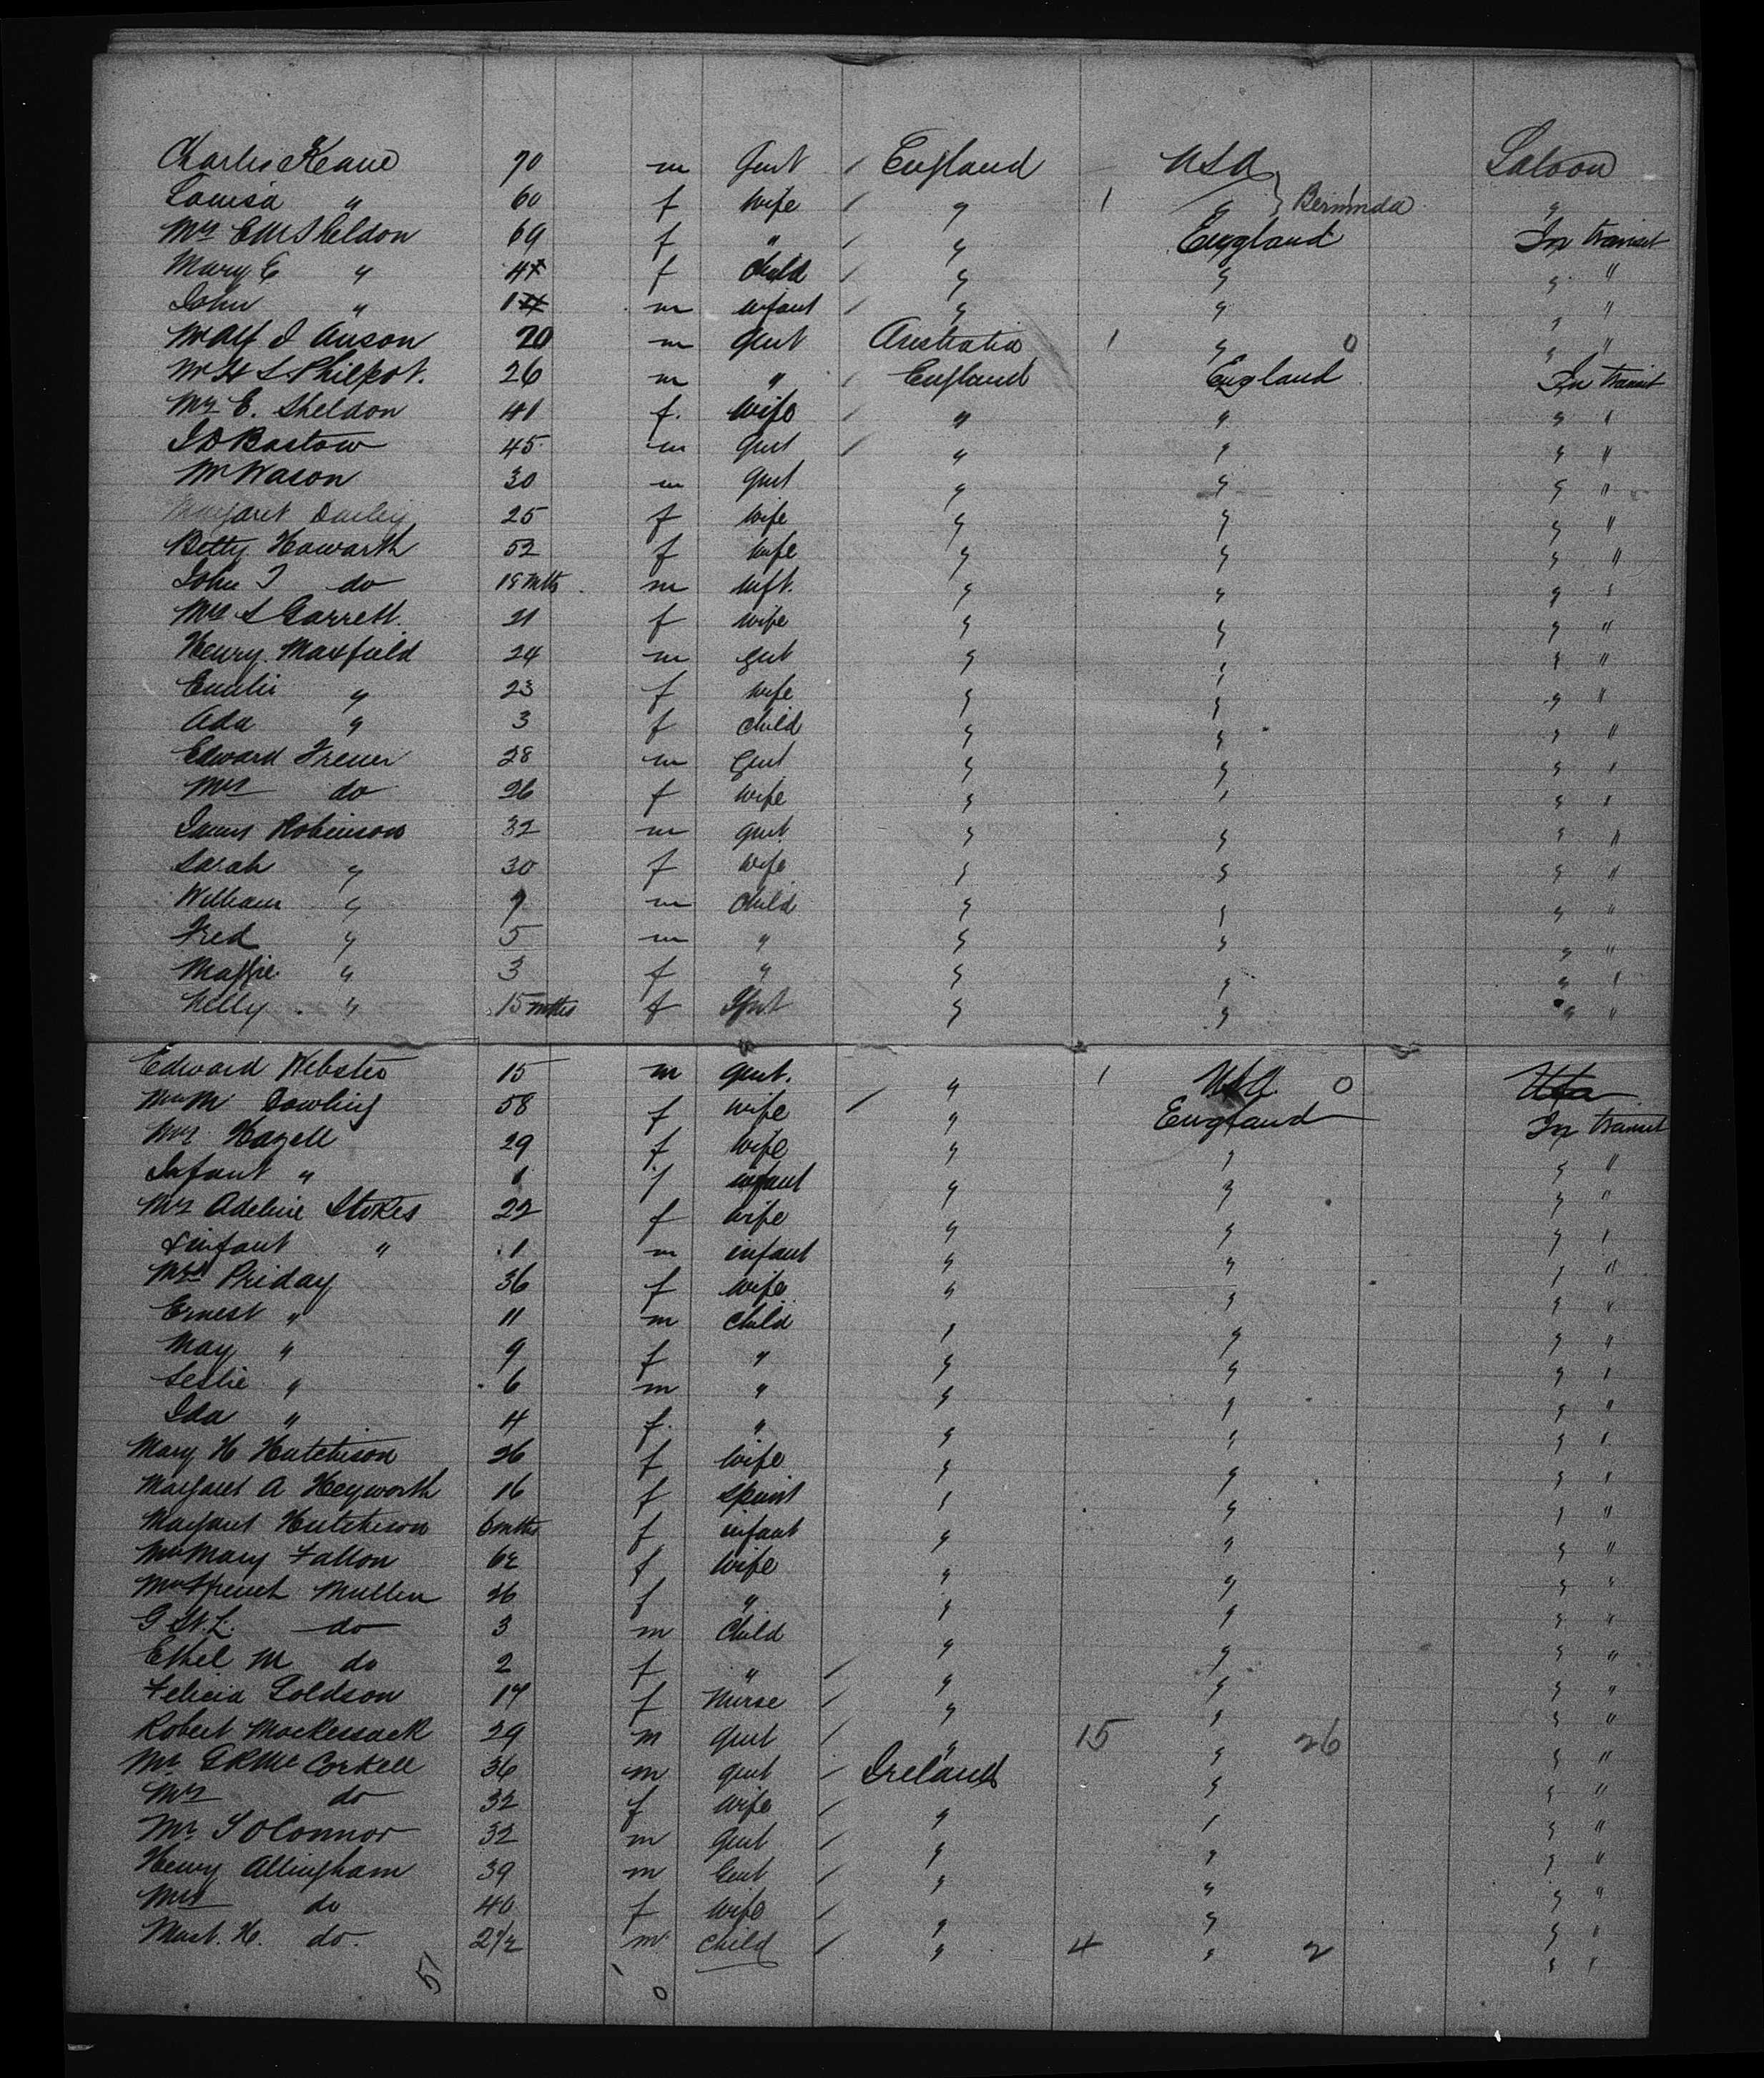 Charles Keane 70 m Gent / England USA Saloon
Louisa " 60 f wife / " 1 " } Bermuda "
Mrs E M Sheldon 69 f " / " England In transit
Mary E " 4 f child / " " " "
John " 1 m infant / " " " "
Mr Alf J Anson 20 m gent Australia 1 " 0 " "
Mr H S Philpot. 26 m " / England England In transit
Mrs E. Sheldon 41 f. wife / " " " "
J D Bastow 45 m gent / " " " "
Mr Wason 30 m gent " " " "
Margaret 25 f wife " " " "
Betty Howarth 52 f wife " " " "
John T do 18 mths m inft. " " " "
Mrs S Garrett. 21 f wife " " " "
Henry Maxfield 24 m gent " " " "
Emilie " 23 f wife " " " "
Ada " 3 f child " " " "
Edward 28 m Gent " " " "
Mrs do 26 f wife " " " "
James Robinson 32 m gent. " " " "
Sarah " 30 f wife " " " "
William " 9 m child " " " "
Fred " 5 m " " " " "
Maggie " 3 f " " " " "
Nelly " 15 mths f Infnt " " " "
Edward Webster 15 m gent. " 1 USA 0 Usa
Mrs M Dowling 58 f wife / " England In transit
Mrs Hazell 29 f wife " " " "
Infant " 1 f infant " " " "
Mrs Adeline Stokes 22 f wife " " " "
& infant " 1 m infant " " " "
Mrs Priday 36 f wife " " " "
Ernest " 11 m child " " " "
May " 9 f " " " " "
Leslie " 6 m " " " " "
Ida " 4 f. " " " " "
Mary H Hutchison 26 f wife " " " "
Margaret A Heyworth 16 f spinst " " " "
Margaret Hutchison 6 mths f infant " " " "
Mrs Mary Fallon 62 f wife " " " "
Mrs French Mullen 26 f " " " " "
G St. L. do 3 m child " " " "
Ethel M do 2 f " / " " " "
Felicia Goldson 17 f Nurse / " " " "
Robert Mackessack 29 m gent / " 15 " 26 " "
Mr G R McCorkell 36 m gent / Ireland " " "
Mrs do 32 f wife / " " " "
Mr S O'Connor 32 m gent / " " " "
Henry Allingham 39 m Gent / " " " "
Mrs do 40 f wife / " " " "
Mast. H. do. 2 1/2 m child / " 4 " 2 " "
51 0